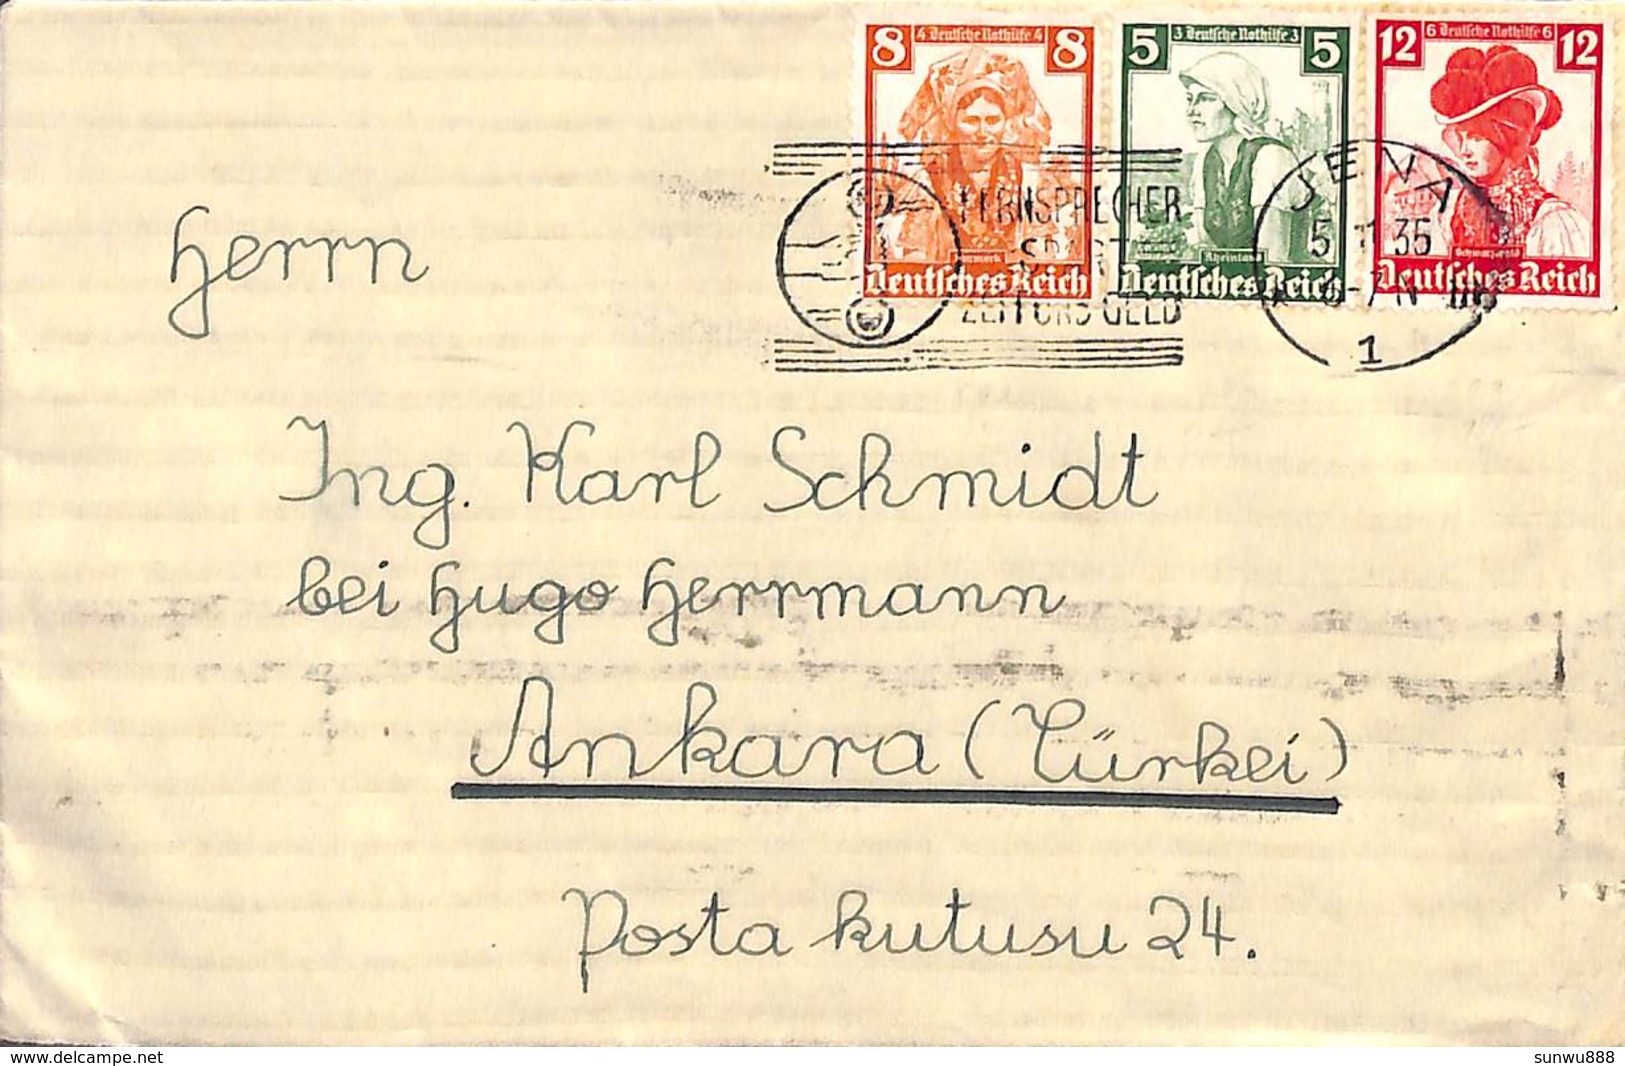 8 4 Deutsche Nothilfe 4 8
5 3 Deutsche Nothilfe 3 5
12 6 Deutsche Nothilfe 6 12
Rheinland
Schwarzwald
Deutsches Reich
Deutsches Reich
Deutsches Reich
FERNSPRECHER
SPART
ZEIT UND GELD
JENA
35
1
Herrn
Ing. Karl Schmidt
bei Hugo Herrmann
Ankara (Türkei)
Posta kutusu 24.
delcampe.net
sunwu888